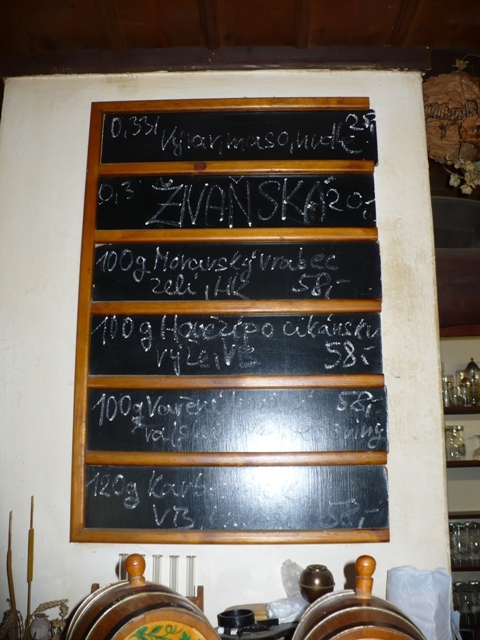 0,33l Vývar, maso, nudle 25,-
0,3 ŽŇANSKÁ 20,-
100g Moravský vrabec
zelí, HK 58,-
100g Hovězí po cikánsku
rýže, VB 58,-
100g Vařené 58,-
120g Karb
VB 58,-